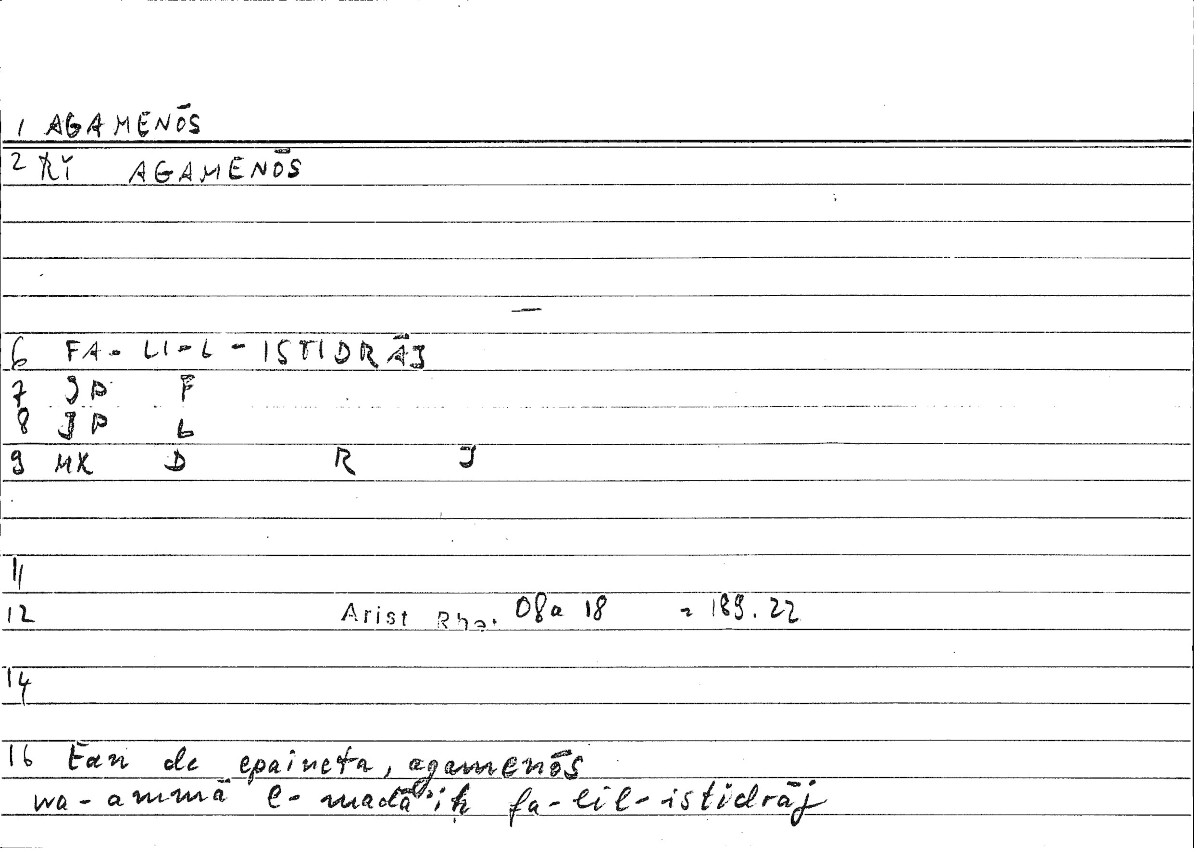 1 AGAMENŌS
2 KI AGAMENŌS
6 FA- LI-L-ISTIDRĀJ
7 JP F
8 JP L
9 MK D R J
11
12 Arist Rhe. 08a 18 = 189.22
14
16 Ean de epaineta, agamenōs
wa-ammā l-madāʾiḥ fa-lil-istidrāj